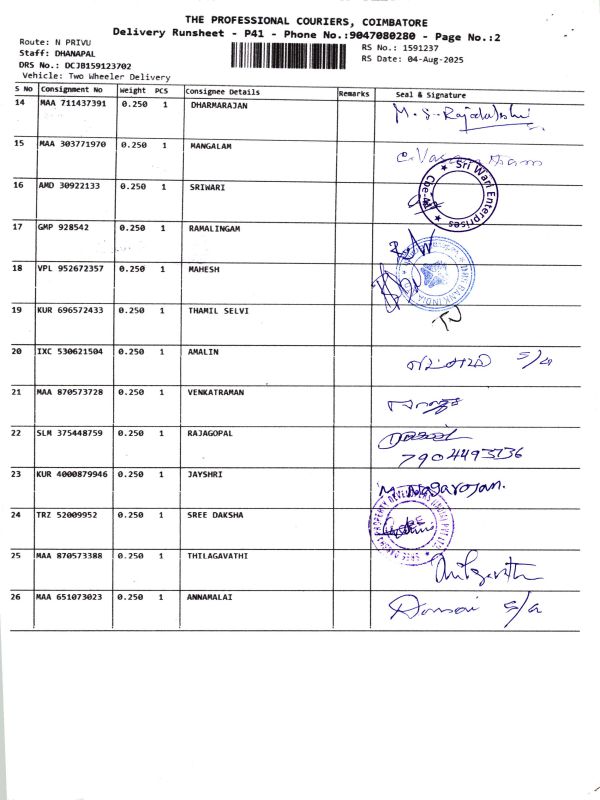 THE PROFESSIONAL COURIERS, COIMBATORE
Delivery Runsheet - P41 - Phone No.:9047080280 - Page No.:2
Route: N PRIVU
RS No.: 1591237
Staff: DHANAPAL
RS Date: 04-Aug-2025
DRS No.: DCJB159123702
Vehicle: Two Wheeler Delivery
S No Consignment No Weight PCS Consignee Details Remarks Seal & Signature
14 MAA 711437391 0.250 1 DHARMARAJAN M.S.Rajalakshi
15 MAA 303771970 0.250 1 MANGALAM
16 AMD 30922133 0.250 1 SRIWARI Sri Wari Enterprises
17 GMP 928542 0.250 1 RAMALINGAM
18 VPL 952672357 0.250 1 MAHESH
19 KUR 696572433 0.250 1 THAMIL SELVI
20 IXC 530621504 0.250 1 AMALIN S/a
21 MAA 870573728 0.250 1 VENKATRAMAN
22 SLM 375448759 0.250 1 RAJAGOPAL
7904493736
23 KUR 4000879946 0.250 1 JAYSHRI M. Nagarajan.
24 TRZ 52009952 0.250 1 SREE DAKSHA
25 MAA 870573388 0.250 1 THILAGAVATHI
26 MAA 651073023 0.250 1 ANNAMALAI S/a